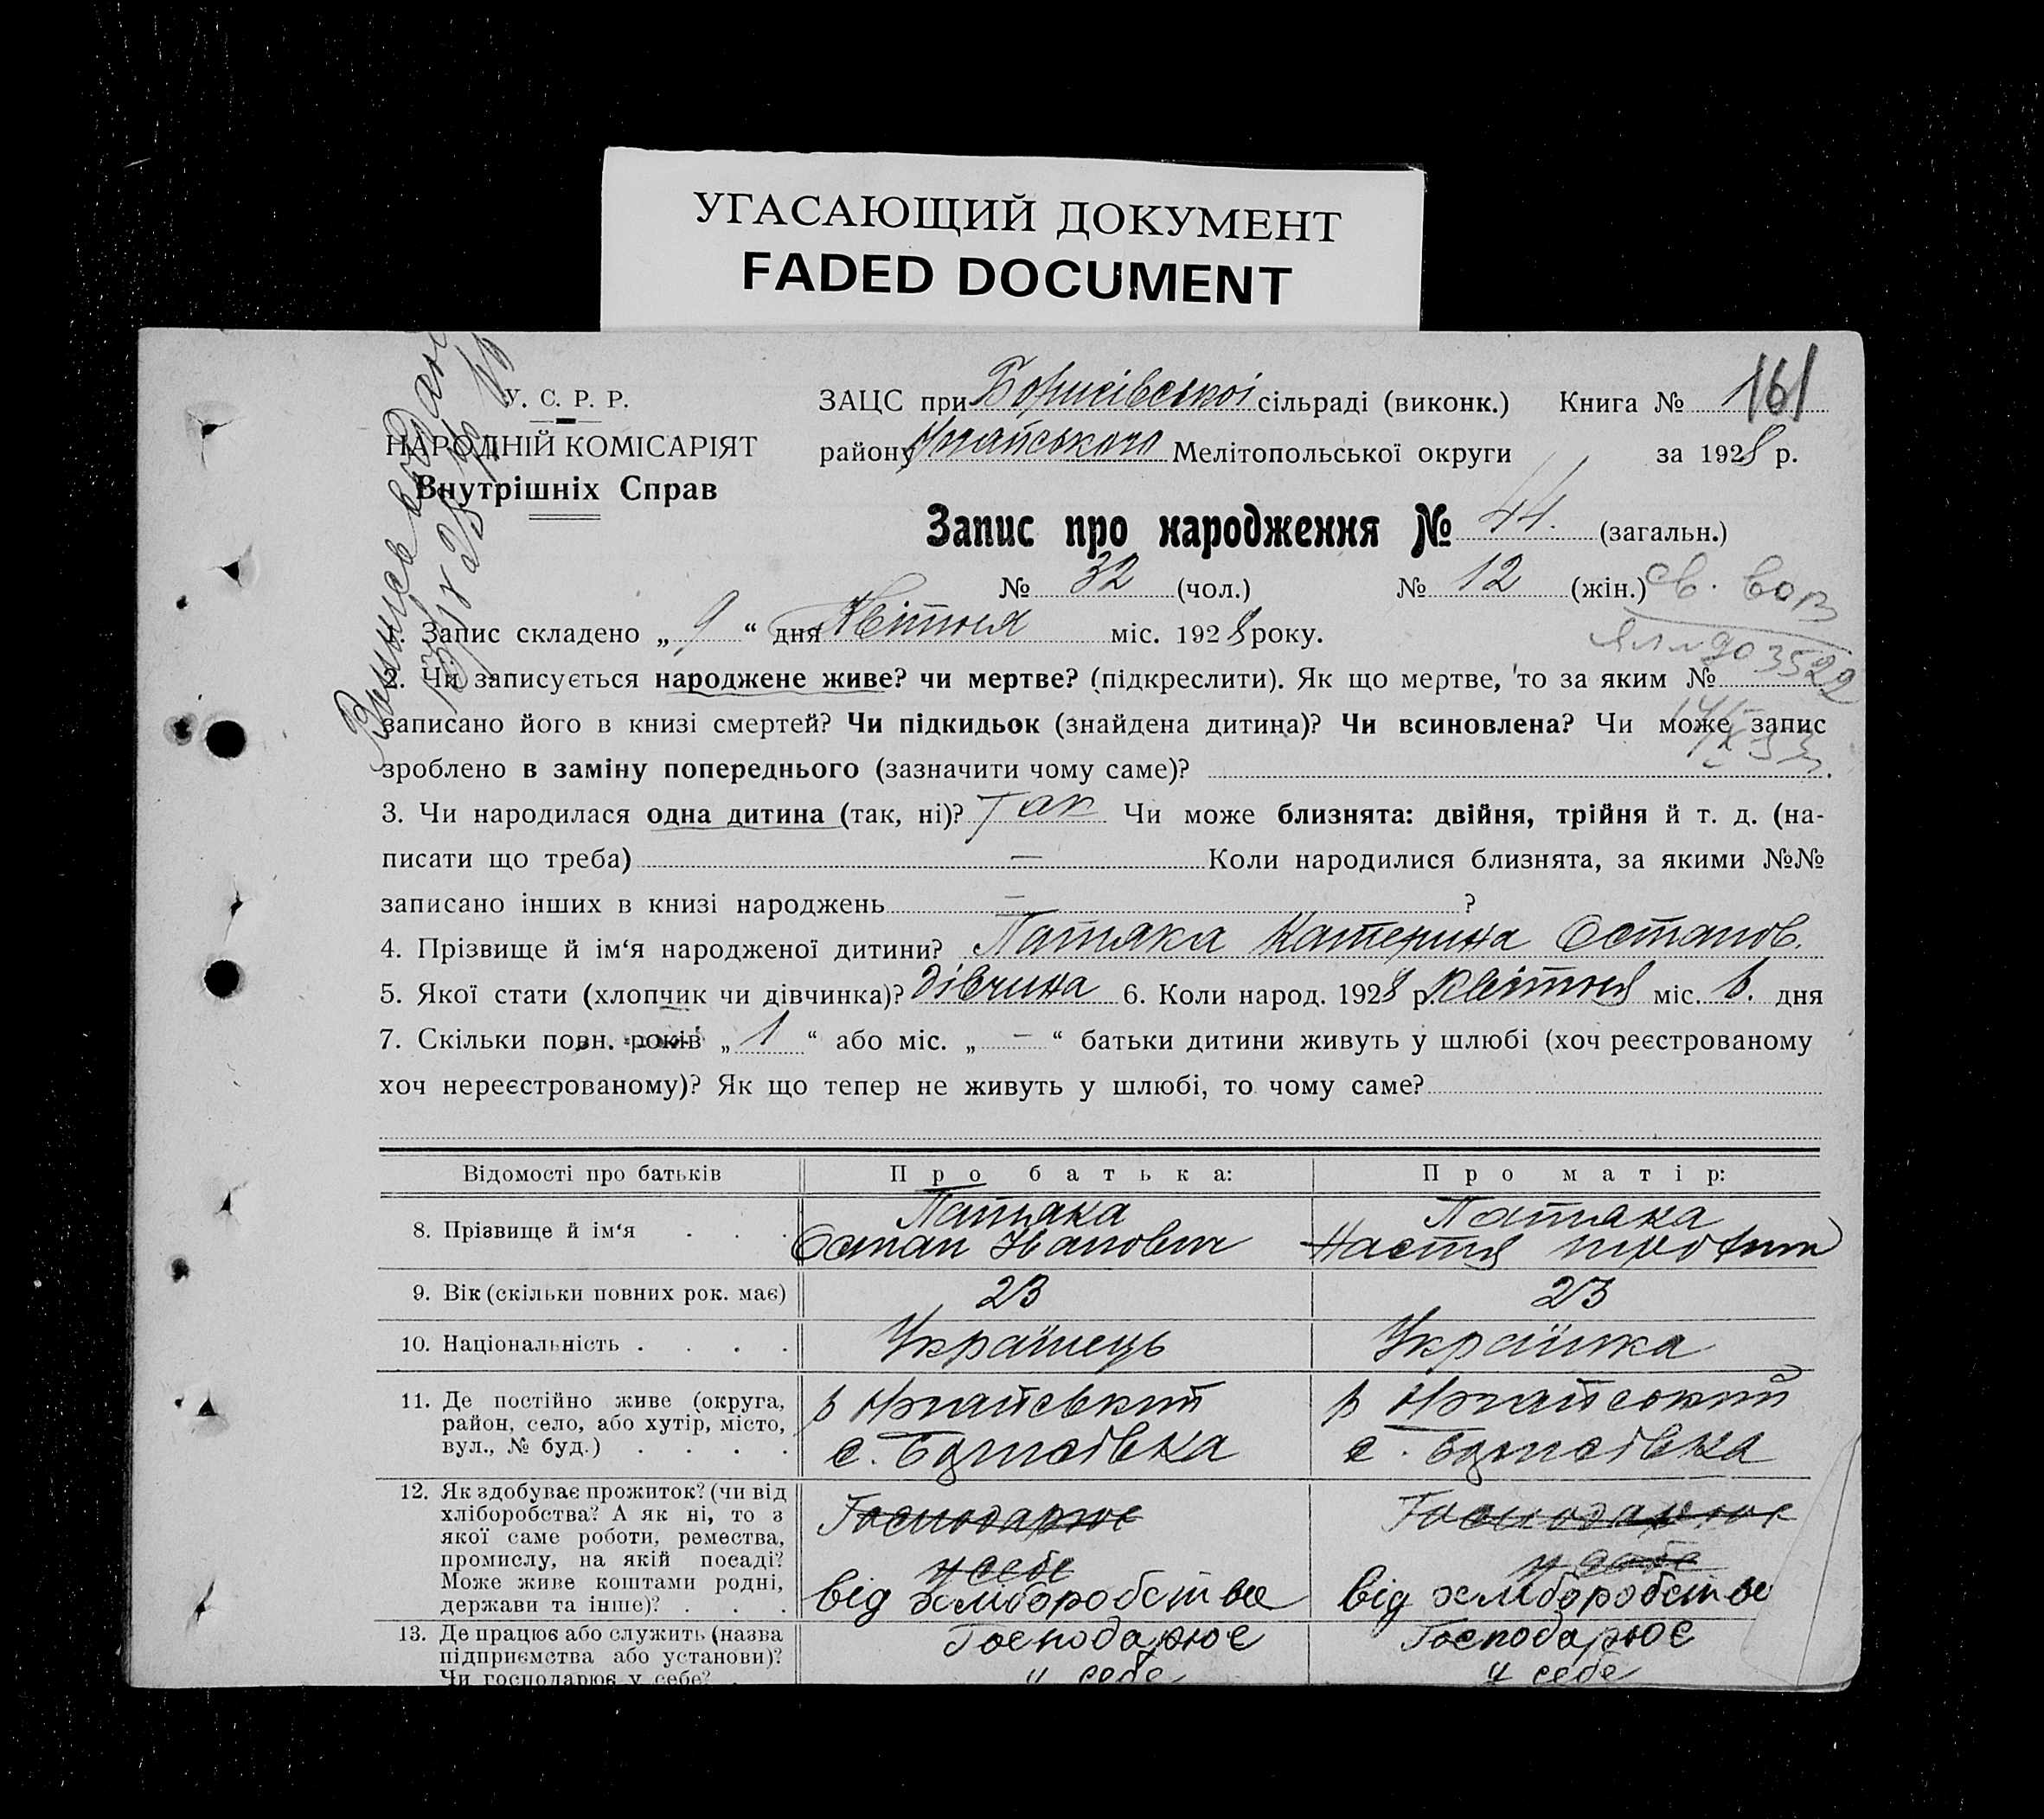 УГАСАЮЩИЙ ДОКУМЕНТ
FADED DOCUMENT
У. С. Р. Р.
НАРОДНІЙ КОМІСАРІЯТ
Внутрішніх Справ
ЗАЦС при Борисівської сільраді (виконк.) Книга № 161
району Мелітопольської округи за 1928 р.
Запис про народження № 44. (загальн.)
№ 32 (чол.) № 12 (жін.)
1. Запис складено „ 9 “ дня Квітня міс. 1928 року.
2. Чи записується народжене живе? чи мертве? (підкреслити). Як що мертве, то за яким №
записано його в книзі смертей? Чи підкидьок (знайдена дитина)? Чи всиновлена? Чи може запис
зроблено в заміну попереднього (зазначити чому саме)?
3. Чи народилася одна дитина (так, ні)? Так Чи може близнята: двійня, трійня й т. д. (на-
писати що треба) — Коли народилися близнята, за якими №№
записано інших в книзі народжень — ?
4. Прізвище й ім‘я народженої дитини? Патяка Катерина Остапов.
5. Якої стати (хлопчик чи дівчинка)? дівчина 6. Коли народ. 1928 р. Квітня міс. 8. дня
7. Скільки повн. років „ 1 “ або міс. „ — “ батьки дитини живуть у шлюбі (хоч реєстрованому
хоч нереєстрованому)? Як що тепер не живуть у шлюбі, то чому саме?
Відомості про батьків Про батька: Про матір:
8. Прізвище й ім‘я . . . Патяка Остап Іванович Патяка Настя
9. Вік (скільки повних рок. має) 23 23
10. Національність . . . . Українець Українка
11. Де постійно живе (округа, район, село, або хутір, місто, вул., № буд.) . . . .
с. Борисівка с. Борисівка
12. Як здобуває прожиток? (чи від
хліборобства? А як ні, то з
якої саме роботи, ремества,
промислу, на якій посаді?
Може живе коштами родні,
держави та інше)? . . .
Господарює у себе Господарює у себе
від хліборобства від хліборобства
13. Де працює або служить (назва
підприємства або установи)?
Чи господарює у себе? .
Господарює у себе Господарює у себе